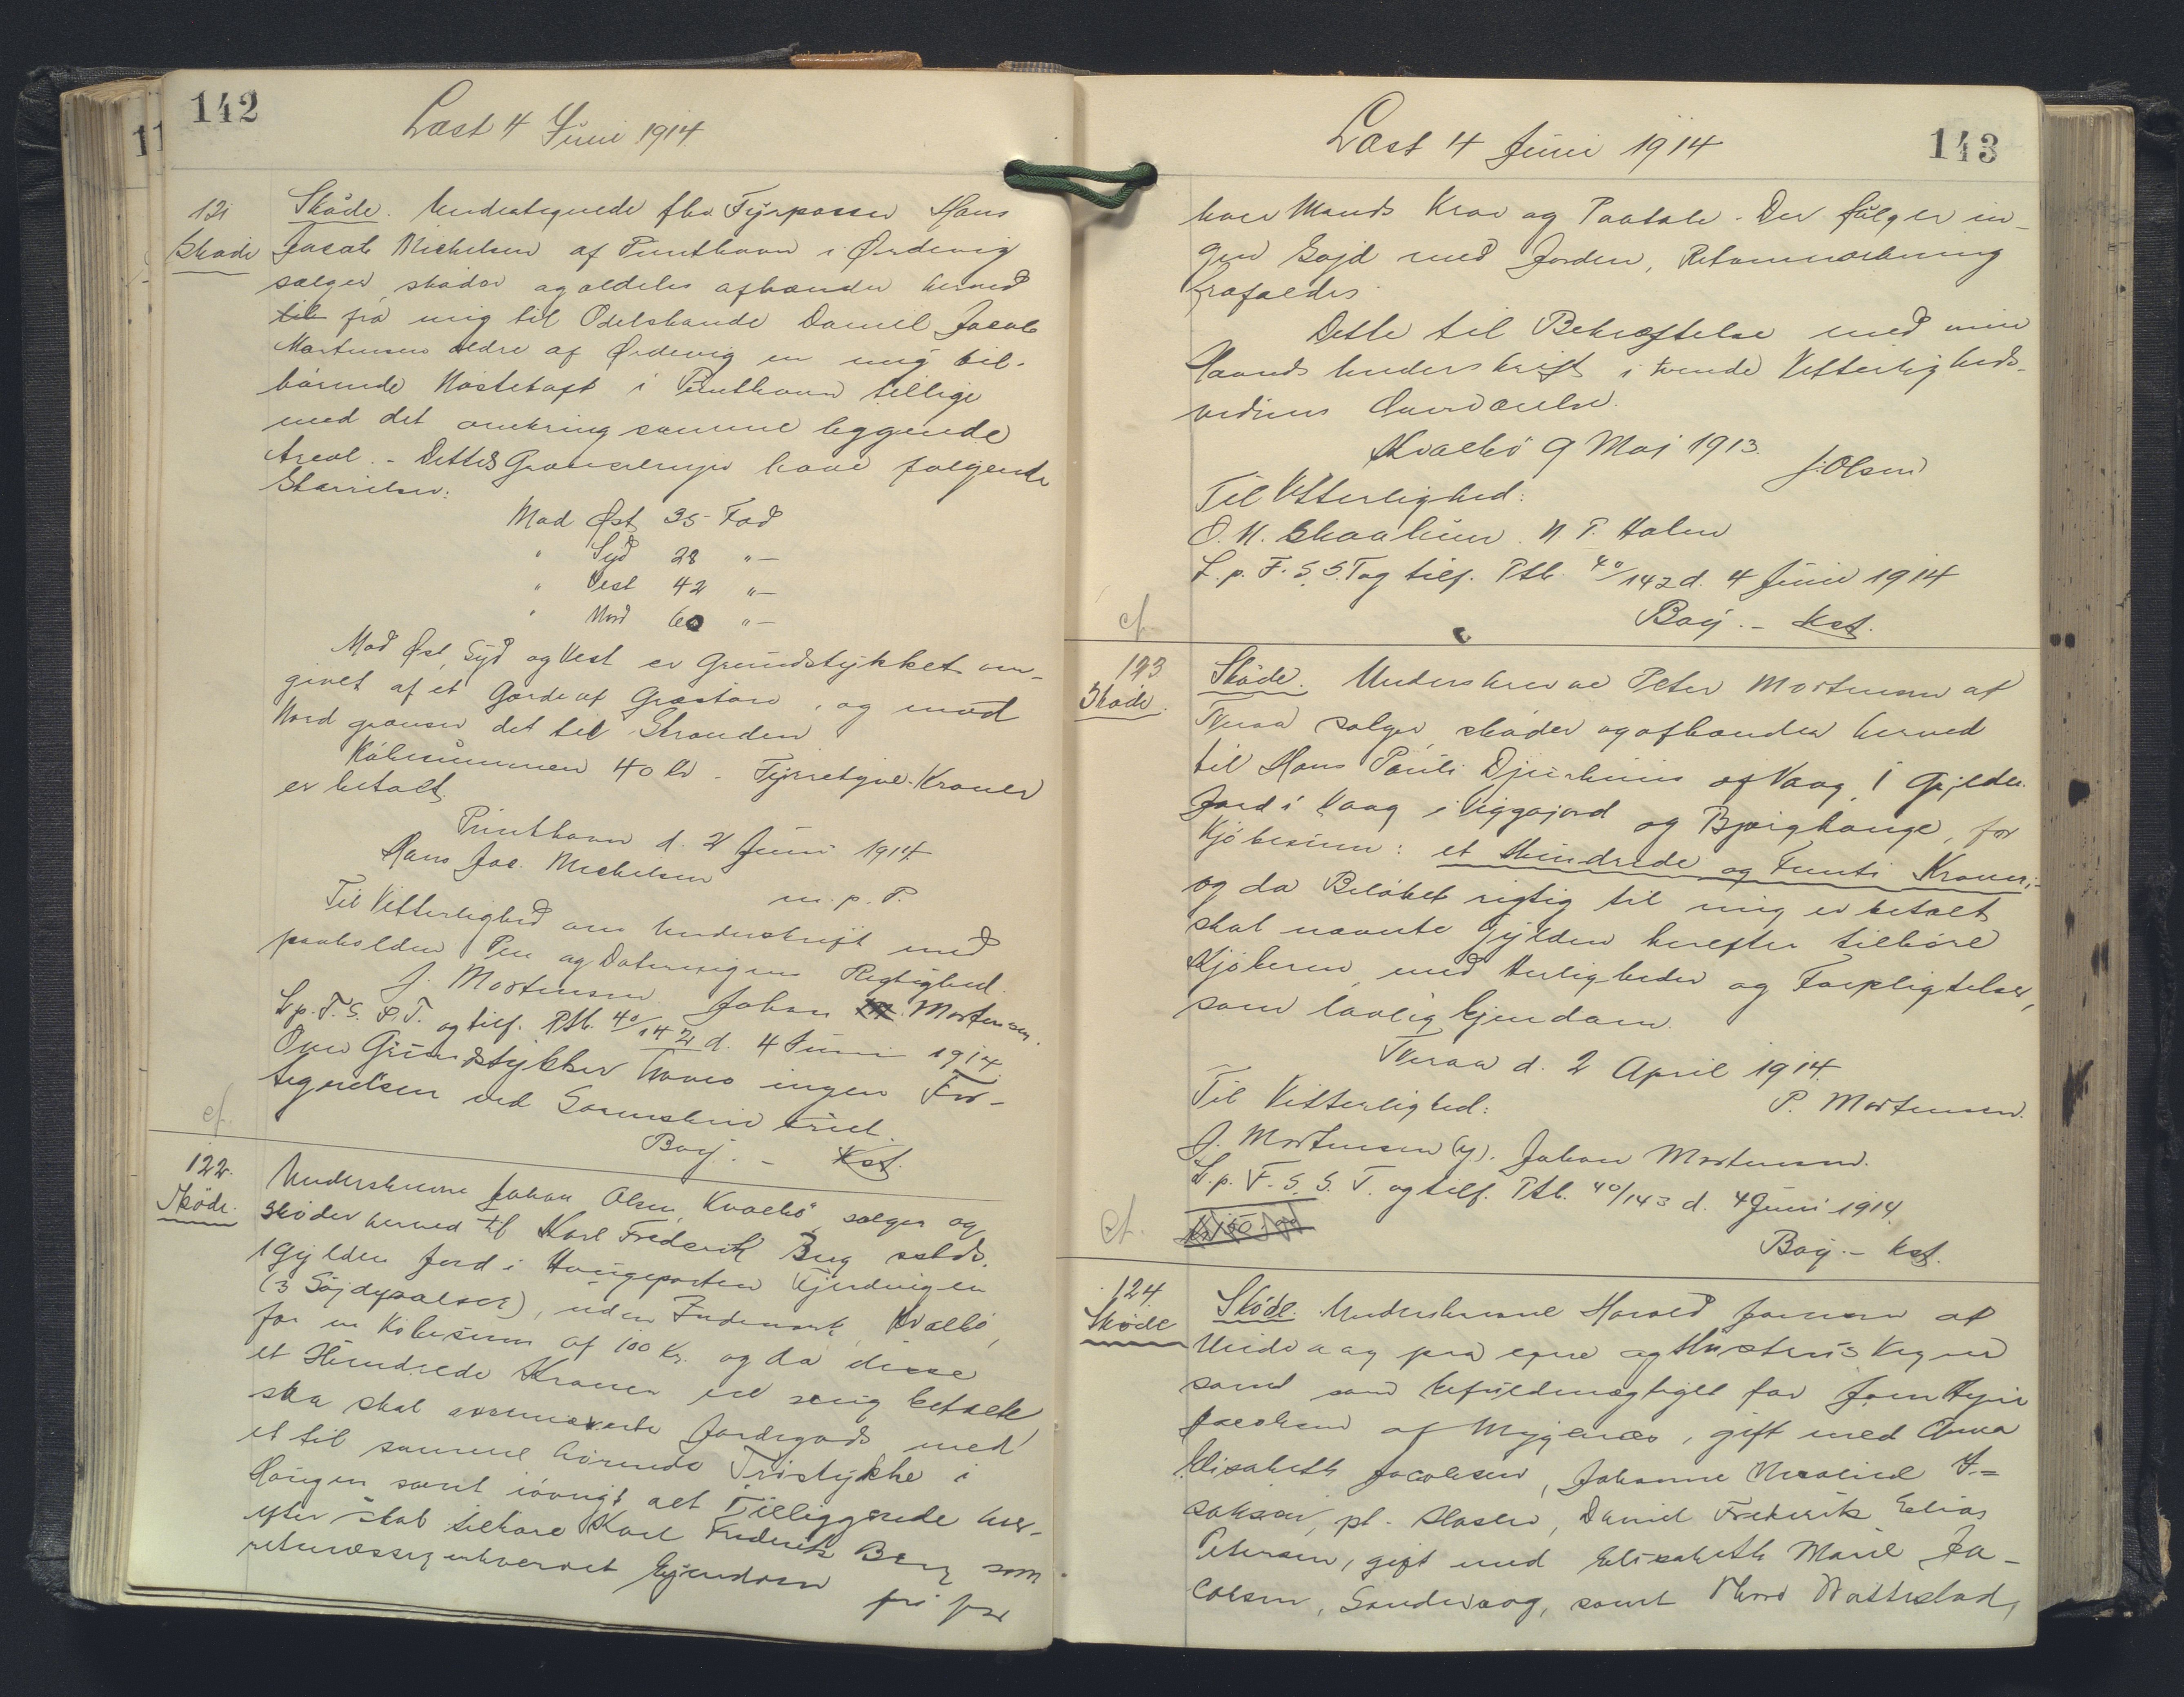 142
Læst 4 Juni 1914.
121
Skøde
Skøde. Undertegnede fhv. Fyrpasser Hans
Jacob Michelsen af Punthavn i Ørdevig
sælger, skøder og aldeles afhænder herved
til fra mig til Odelsbonde Daniel Jacob
Mortensen ældre af Ørdevig en mig til-
hørende Nøstetoft i Punthavn tillige
med det omkring samme liggende
Areal. - Dettes Grændselinjer have følgende
Størrelser:
Mod Øst 35 Fod
" Syd 28 "-
" Vest 42 "-
" Nord 60 "-
Mod Øst, Syd og Vest er Grundstykket om-
givet af et Gærde af Graasten, og mod
Nord grænser det til Stranden
Købesummen 40 Kr - Fyrretyve - Kroner
er betalt.
Punthavn d. 2 Juni 1914
Hans Jac. Michelsen
m. p. P.
Til Vitterlighed om Underskrift med
paaholden Pen og Dateringens Rigtighed.
J. Mortensen. Johan M. Mortensen.
L. p. F. S. S. T. og tilf. Ptb. 40/142 d. 4 Juni 1914.
Over Grundstykker haves ingen For-
tegnelsen ved Sorenskriveriet.
Bay. - Kst.
cf.
122.
Skøde.
Underskrevne Johan Olsen, Kvalbø, sælger og
skøder herved til Karl Frederik Berg sstds.
1 Gylden Jord i Hougeparten Kjerdvigen
(3 Søjdypalser), uden Indmark, Kvalbø,
for en Købesum af 100 Kr. og da disse
et Hundrede Kroner er mig betalt
saa skal ovennævnte Jordegods med
et til samme hørende Trøstykke i
Hougen samt iøvrigt alt Tilliggende her-
efter skal tilhøre Karl Frederik Berg som
retmæssig erhvervet Ejendom fri for
143
Læst 4 Juni 1914
hver Mands Krav og Paatale. Der følger in-
gen Søjd med Jorden, Retommærkning
frafaldes.
Dette til Bekræftelse med min
Haands Underskrift i tvende Vitterligheds-
vidners Overværelse.
Kvalbø 9 Maj 1913.
J. Olsen
Til Vitterlighed:
O. N. Skaalum. N. P. Holm
L. p. F. S. S. T. og tilf. Ptb. 40/142 d. 4 Juni 1914
Bay. - Kst.
cf.
123
Skøde.
Skøde. Underskrevne Peter Mortensen af
Tveraa sælger, skøder og afhænder herved
til Hans Pauli Djurhuus af Vaag, 1 Gylden
Jord i Vaag i Viggajord og Bjørghauge, for
Kjøbesum: et Hundrede og Femti Kroner;
og da Beløbet rigtig til mig er betalt
skal nævnte Gylden herefter tilhøre
Kjøberen, med Herligheder og Forpligtelser,
som lovlig Ejendom.
Tveraa d. 2 April 1914.
P. Mortensen.
Til Vitterlighed:
J. Mortensen (y). Johan Mortensen.
L. p. F. S. S. T. og tilf. Ptb. 40/143 d. 4 Juni 1914.
cf.
Bay. - Kst.
124.
Skøde
Skøde. Underskrevne Harald Jensen af
Midvaag paa egne og Hustrus Vegne
samt som befuldmægtiget for Joen Fyrie
Jacobsen af Myggenæs, gift med Anna
Elisabeth Jacobsen, Johanne I=
saksen, pt. Daniel Frederik Elias
Petersen, gift med Elisabeth Marie Ja-
cobsen, Sandevaag, samt Thord Nattestad,